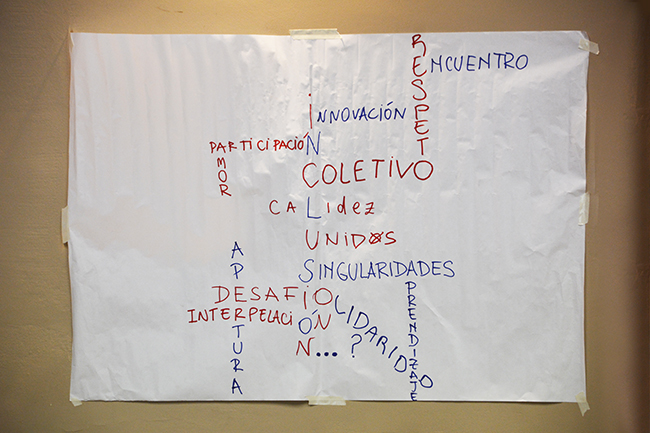 RESPETO
ENCUENTRO
iNNOVACIÓN
PARTICIPACIÓN
AMOR
COLETIVO
CALIdez
UNIDOS
SINGULARIDADES
DESAFIO
INTERPELACIÓN
APERTURA
SOLIDARIDO
APRENDIZAJE
iNCLUSIÓN...?